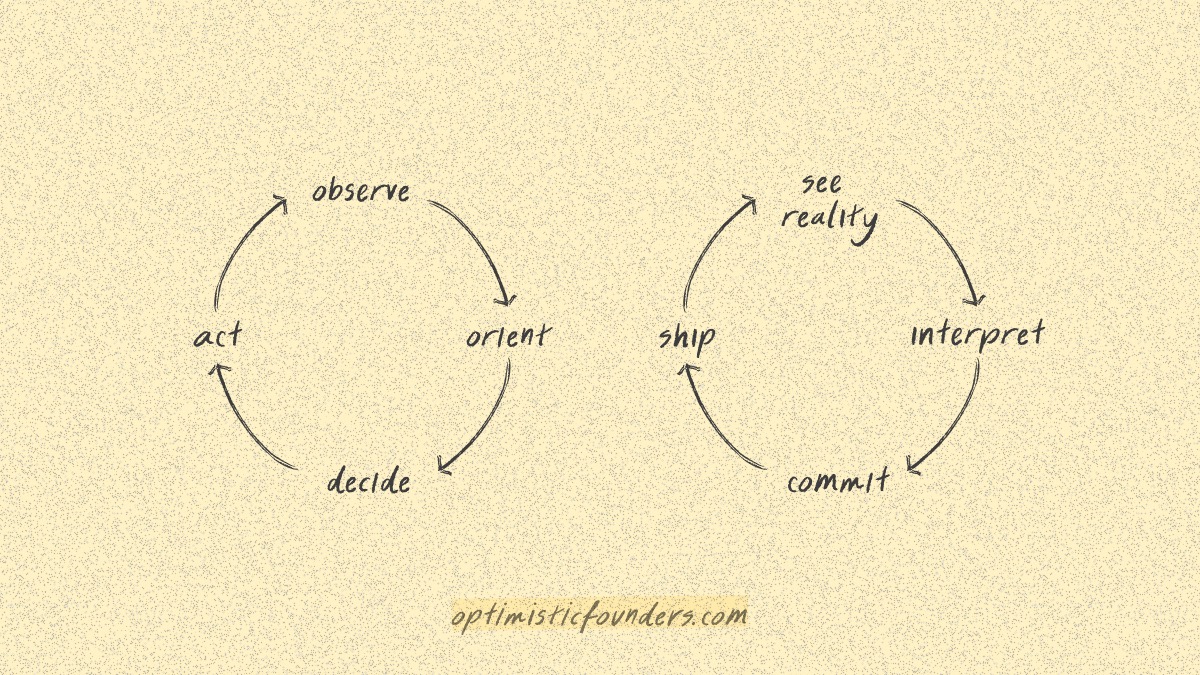 observe
orient
decide
act
see
reality
interpret
commit
ship
optimisticfounders.com